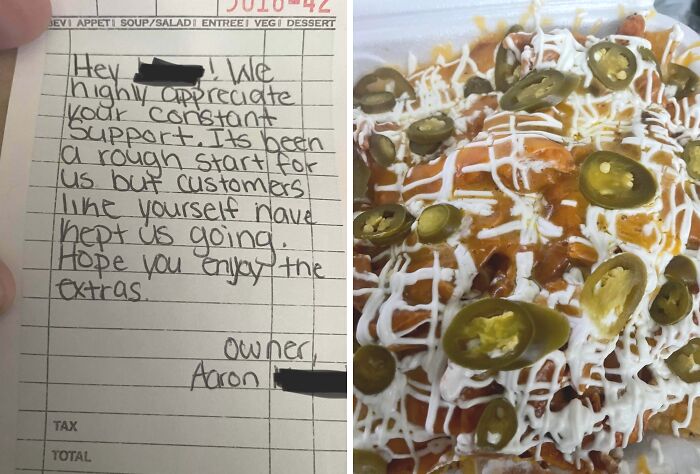 BEV | APPET | SOUP/SALAD | ENTREE | VEG | DESSERT
Hey ! We
highly appreciate
your constant
Support. Its been
a rough start for
us but customers
like yourself have
kept us going.
Hope you enjoy the
extras.
owner,
Aaron
TAX
TOTAL